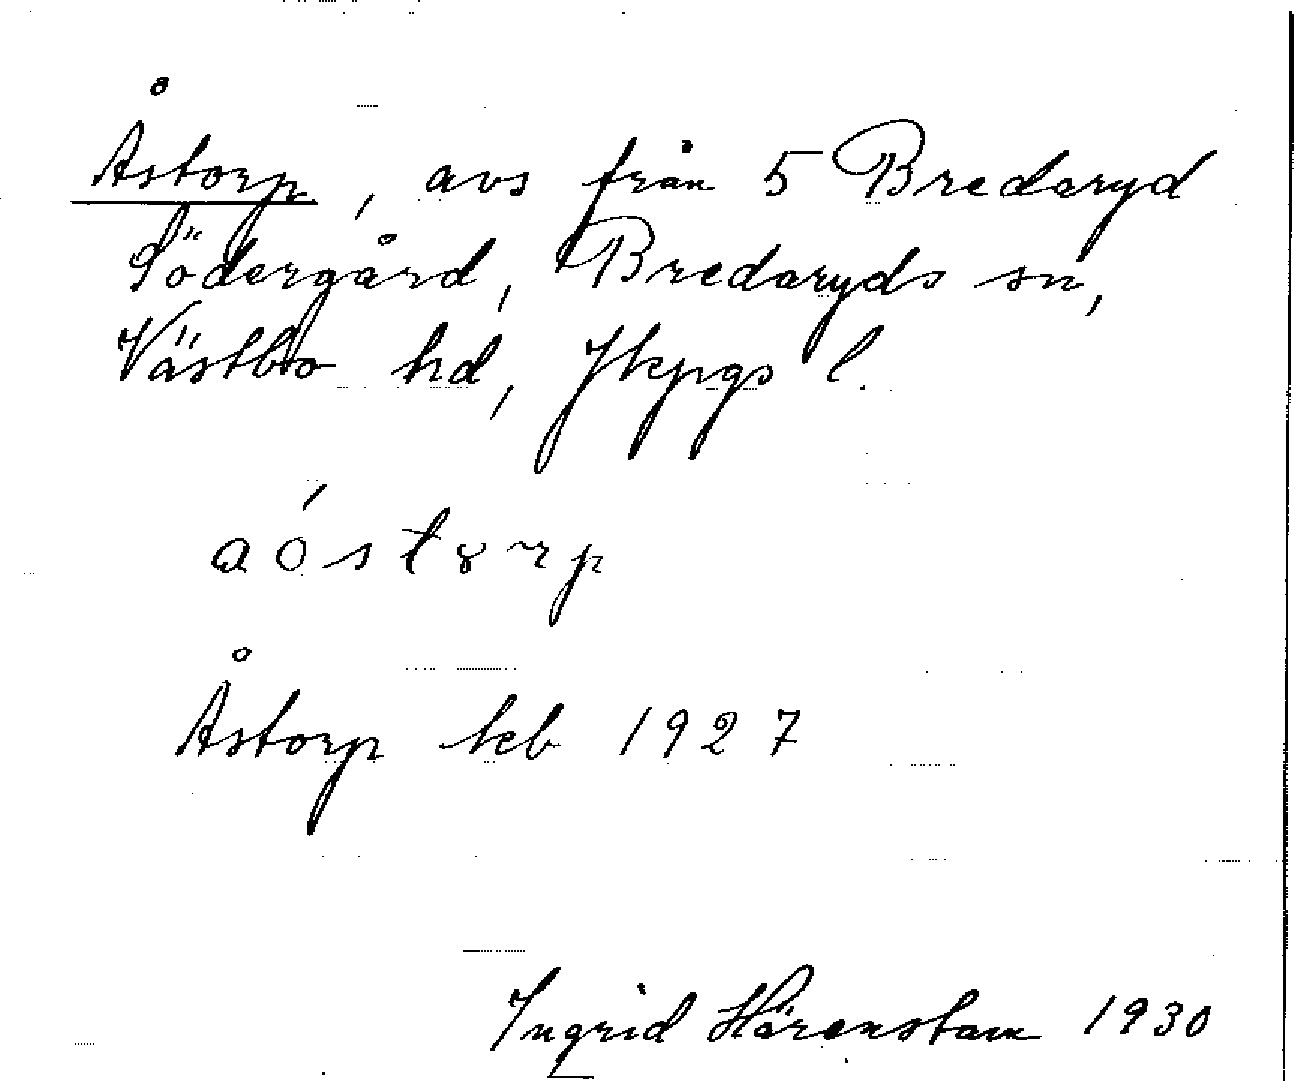 Åstorp, avs från 5 Bredaryd
Södergård, Bredaryds sn,
Västbo hd, Jkpgs l.
aóstorp
Åstorp keb 1927
Ingrid Härenstam 1930